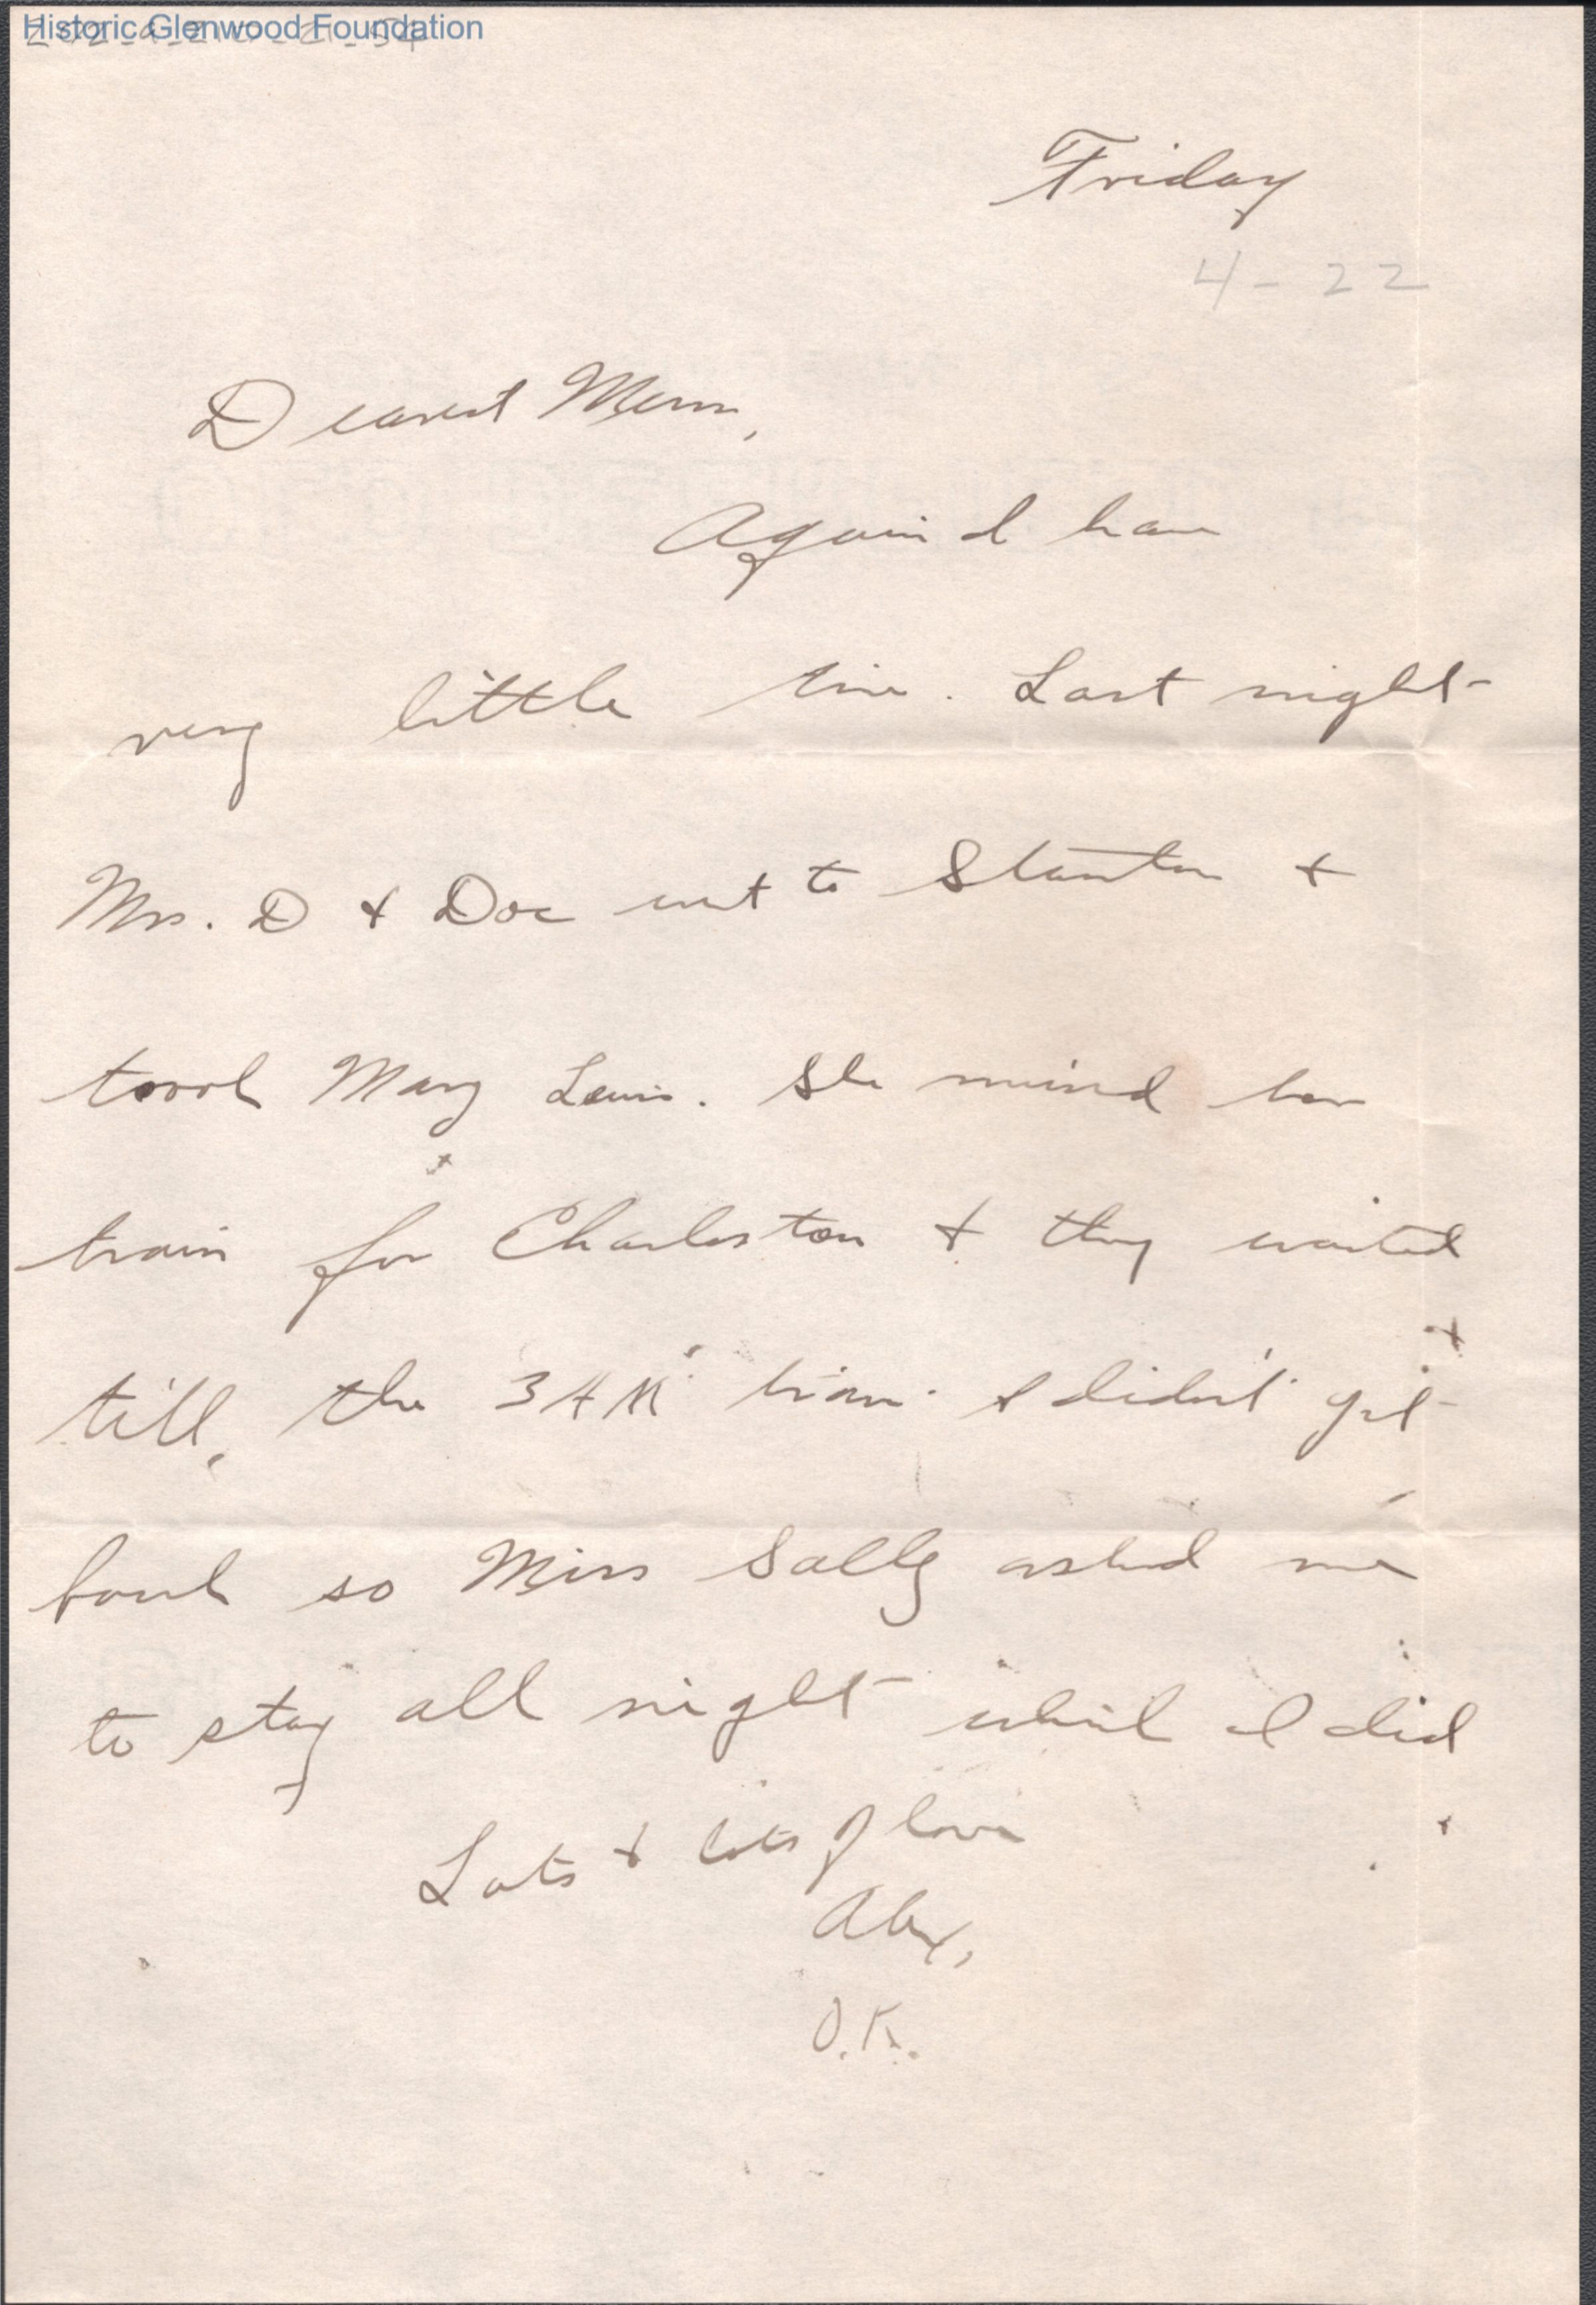 Historic Glenwood Foundation
Friday
4-22
Dearest Mum,
Again I have
very little time. Last night
Mrs. D & Doc went to Staunton &
took Mary Lewis. She missed her
train for Charleston & they waited
till the 3 AM train. I didn't get
back so Miss Sally asked me
to stay all night which I did
Lots & lots of love
Alex,
O.K.